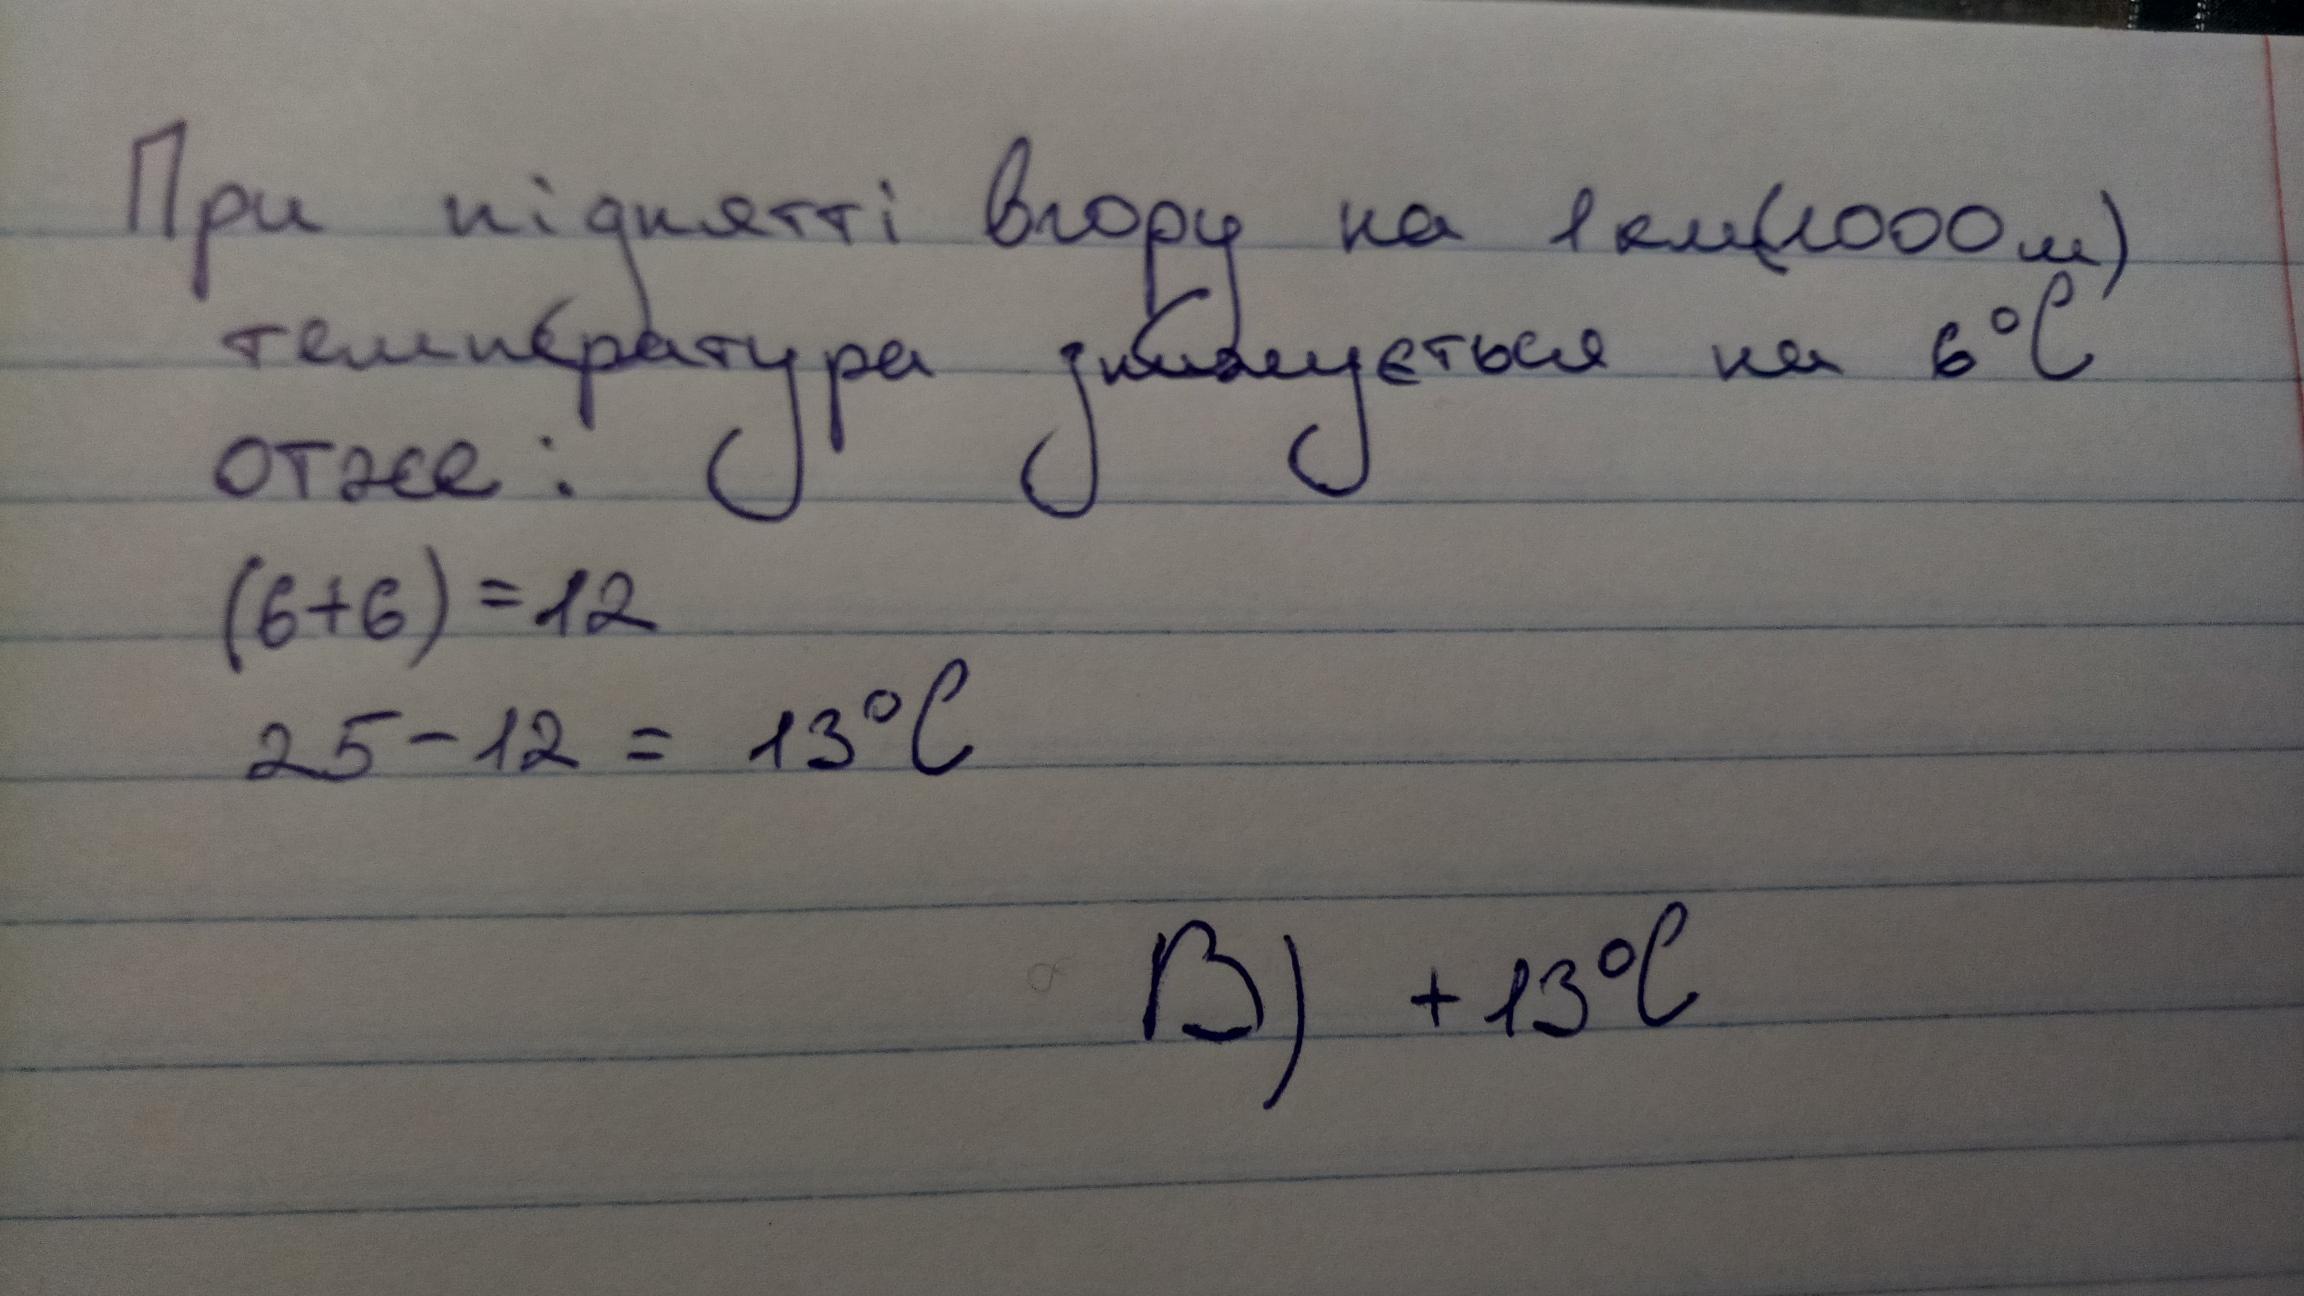 При піднятті вгору на 1 км(1000 м)
температура знижується на 6°C
отже:
(6+6)=12
25-12 = 13°C
В) +13°C